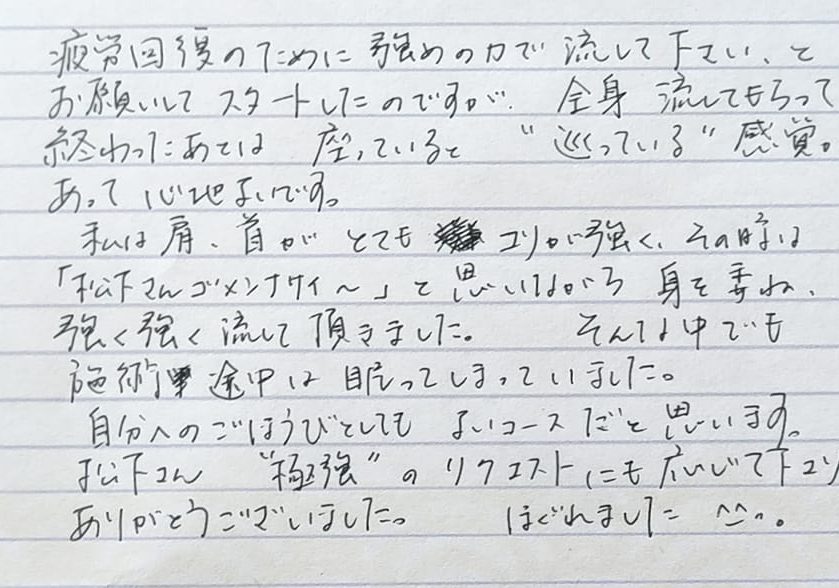 疲労回復のために強めの力で流して下さい、と
お願いしてスタートしたのですが、全身流してもらって
終わったあとは座っていると"巡っている"感覚。
あって心地よいです。
私は肩、首がとてもコリが強く、その時は
「松下さんゴメンナサイ〜」と思いながら身を委ね、
強く強く流して頂きました。そんな中でも
施術途中は眠ってしまっていました。
自分へのごほうびとしてもよいコースだと思います。
松下さん"極強"のリクエストにも応じて下さり
ありがとうございました。ほぐれました ^^。